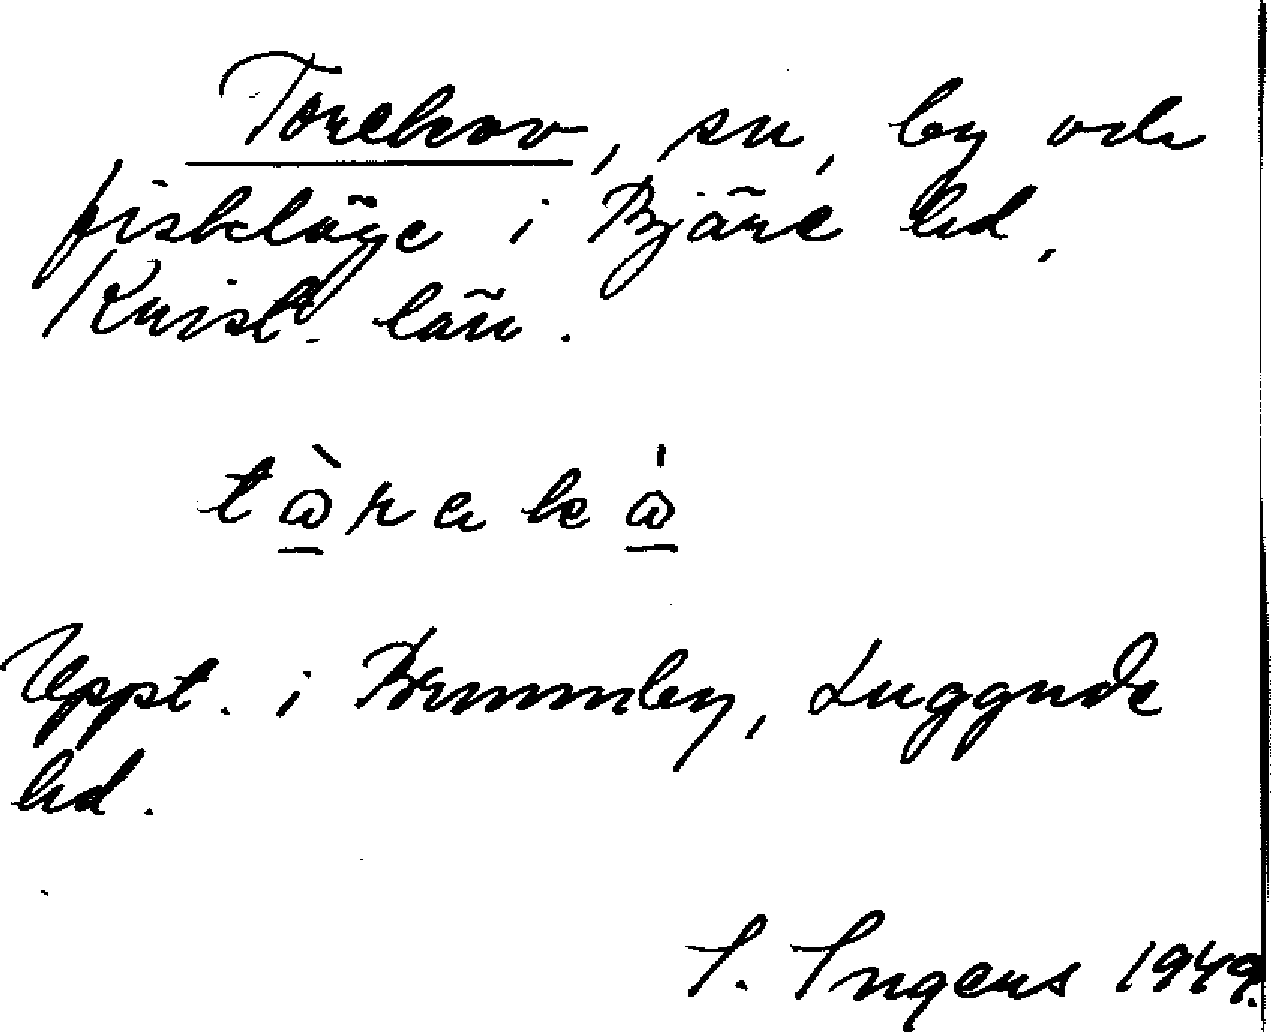 Torekov, sn, by och
fiskeläge i Bjäre hd,
Krist. län.
tὼrekω̍
Uppt. i Brunnby, Luggude
hd.
S. Ingers 1949.